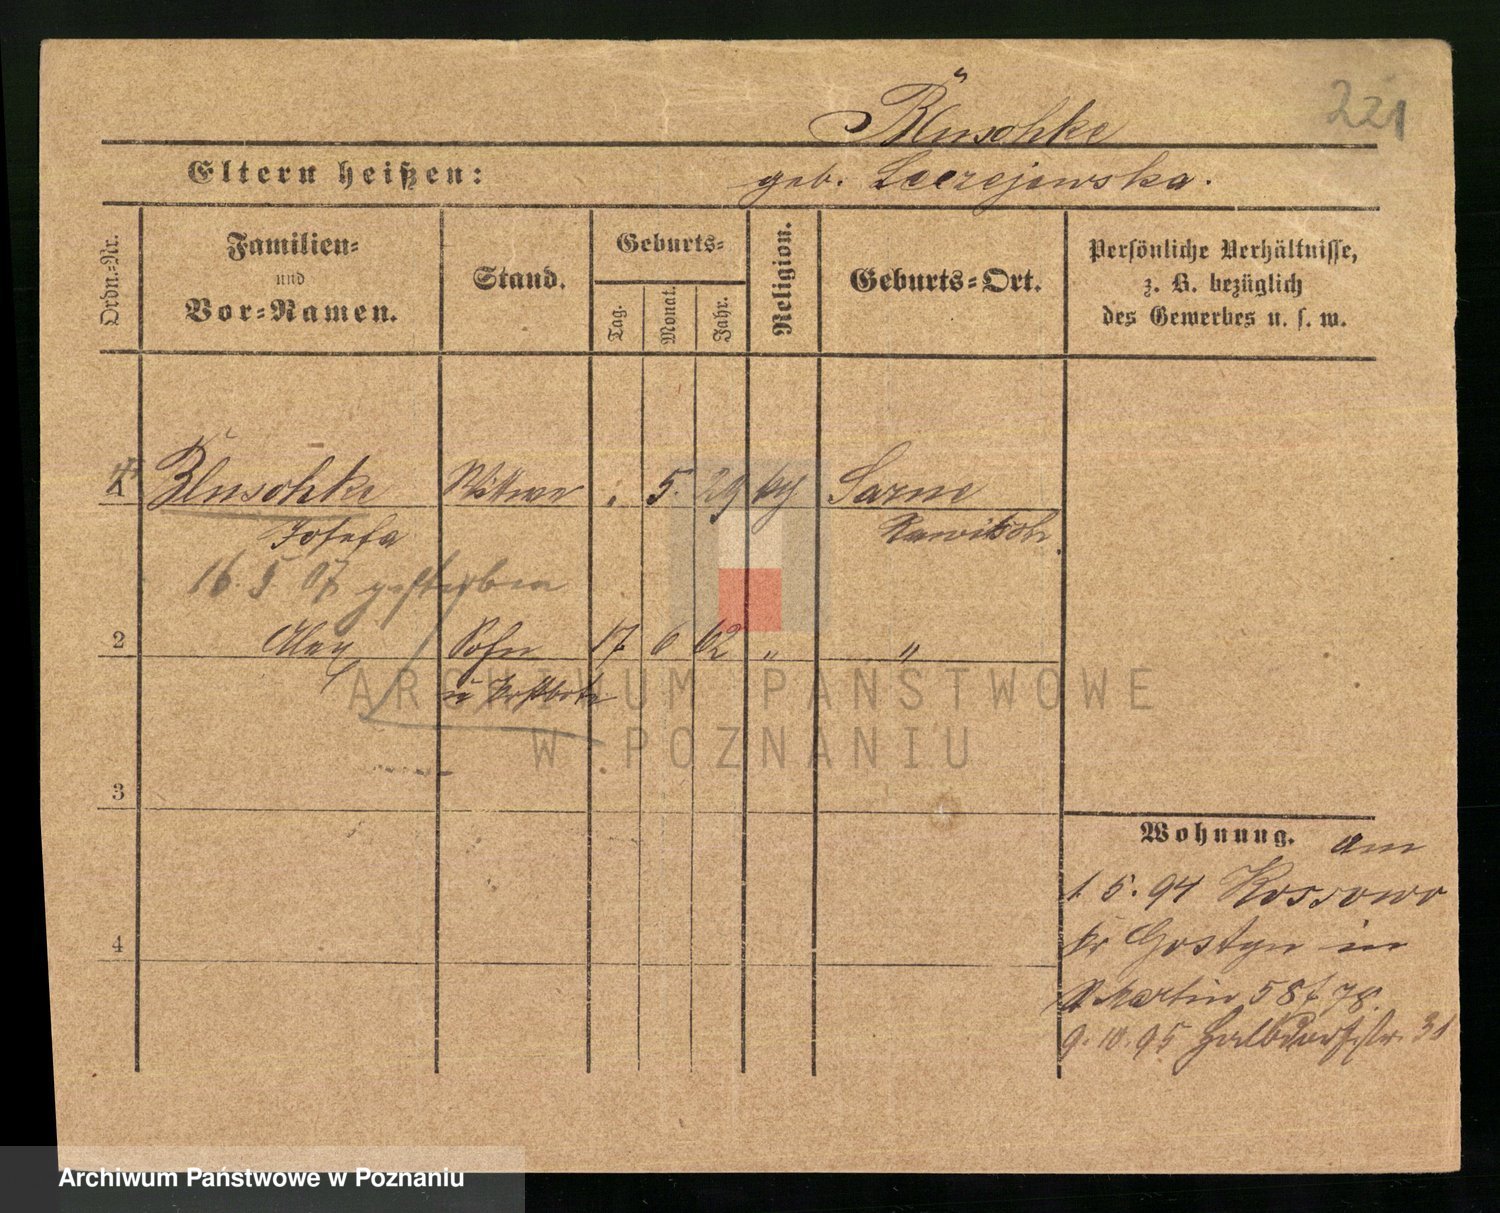 221
Bluschke
Eltern heißen:
geb. Leczejewska.
Ordn.-Nr.
Familien-
und
Vor-Namen.
Stand.
Geburts-
Tag.
Monat.
Jahr.
Religion.
Geburts-Ort.
Persönliche Verhältnisse,
z. B. bezüglich
des Gewerbes u. s. w.
1 Bluschke Wittwe 5. 29 Sarne
Josefa Rawitsch
16. 5 07 gestorben
2 Alex Sohn 17 6 62 " "
u
ARCHIWUM PAŃSTWOWE
W POZNANIU
3
Wohnung. am
1. 5. 94 Kossowo
Kr Gostyn in
St Martin 58 78.
4
9. 10. 95 Halbdorfstr. 31
Archiwum Państwowe w Poznaniu